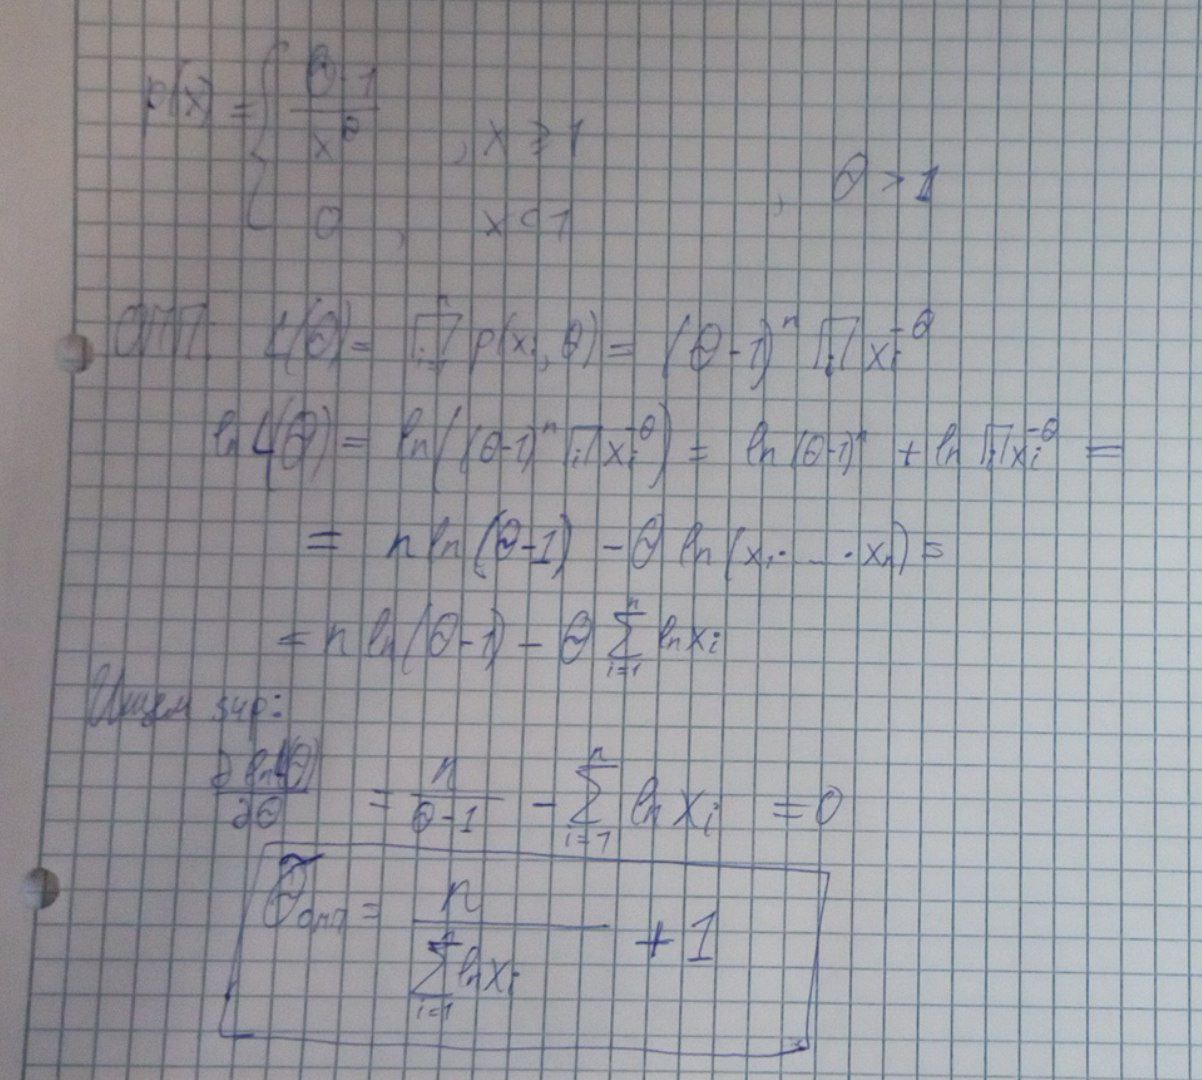 p(x) = { (θ-1)/x^θ , x ≥ 1
0 , x < 1 , θ > 1
ОМП: L(θ) = ∏_{i=1}^{n} p(x_i, θ) = (θ-1)^n ∏_i x_i^{-θ}
ln L(θ) = ln((θ-1)^n ∏_i x_i^{-θ}) = ln(θ-1)^n + ln ∏_i x_i^{-θ} =
= n ln(θ-1) - θ ln(x_1 · ... · x_n) =
= n ln(θ-1) - θ ∑_{i=1}^{n} ln x_i
Ищем sup:
∂ ln L(θ)/∂θ = n/(θ-1) - ∑_{i=1}^{n} ln x_i = 0
θ̃_омп = n/(∑_{i=1}^{n} ln x_i) + 1